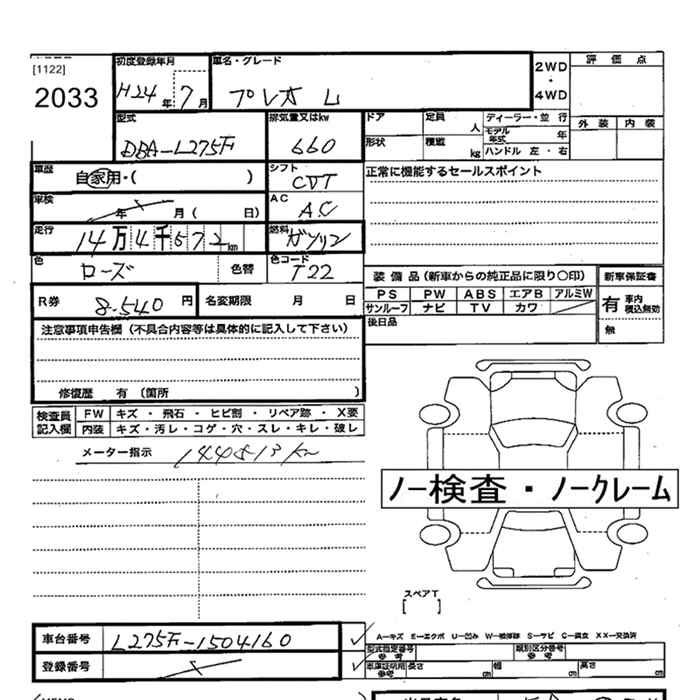 [1122]
2033
初度登録年月
H24年 7月
車名・グレード
プレオ L
2WD
・
4WD
評価点
外装 内装
型式
DBA-L275F
排気量又はkw
660
ドア
定員
人
形状
積載
kg
ディーラー・並行
モデル年式
年
ハンドル 左・右
車歴
自家用・( )
シフト
CVT
正常に機能するセールスポイント
車検
年 月( 日)
AC
AC
走行
14万4千572km
燃料
ガソリン
色
ローズ
色替
色コード
T22
装備品(新車からの純正品に限り〇印)
新車保証書
PS PW ABS エアB アルミW
サンルーフ ナビ TV カワ
有 車内積込無効
無
後日品
R券 8.540円
名変期限 月 日
注意事項申告欄(不具合内容等は具体的に記入して下さい)
修復歴 有 (箇所 )
検査員記入欄
FW キズ・飛石・ヒビ割・リペア跡・X要
内装 キズ・汚レ・コゲ・穴・スレ・キレ・破レ
メーター指示 144813km
ノー検査・ノークレーム
スペアT
[ ]
車台番号 L275F-1504160
登録番号
A-キズ E-エクボ U-凹み W-補修跡 S-サビ C-腐食 XX-交換済
型式指定番号
参考
類別区分番号
参考
車庫証明用
参考
長さ 幅 高さ